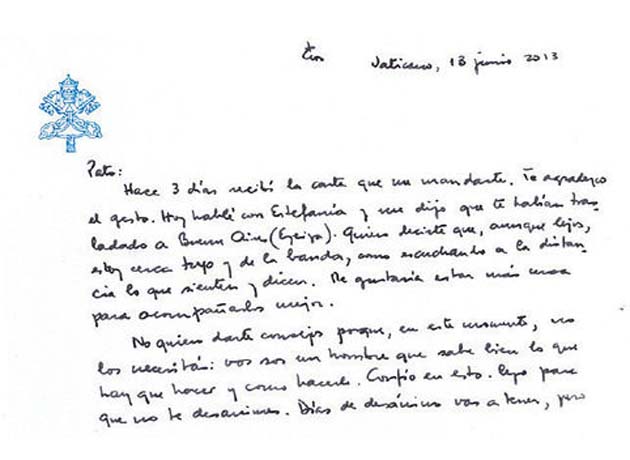 Vaticano, 18 junio 2013
Pato:
Hace 3 días recibí la carta que me mandaste. Te agradezco
el gesto. Hoy hablé con Estefanía y me dijo que te habían tras-
ladado a Buenos Aires (Ezeiza). Quiero decirte que, aunque lejos,
estoy cerca tuyo y de la banda, como escuchando a la distan-
cia lo que sienten y dicen. Me gustaría estar más cerca
para acompañarlos mejor.
No quiero darte consejos porque, en este momento, no
los necesitás: vos sos un hombre que sabe bien lo que
hay que hacer y como hacerlo. Confío en esto. para
que no te desanimes. Días de desánimo vas a tener, pero